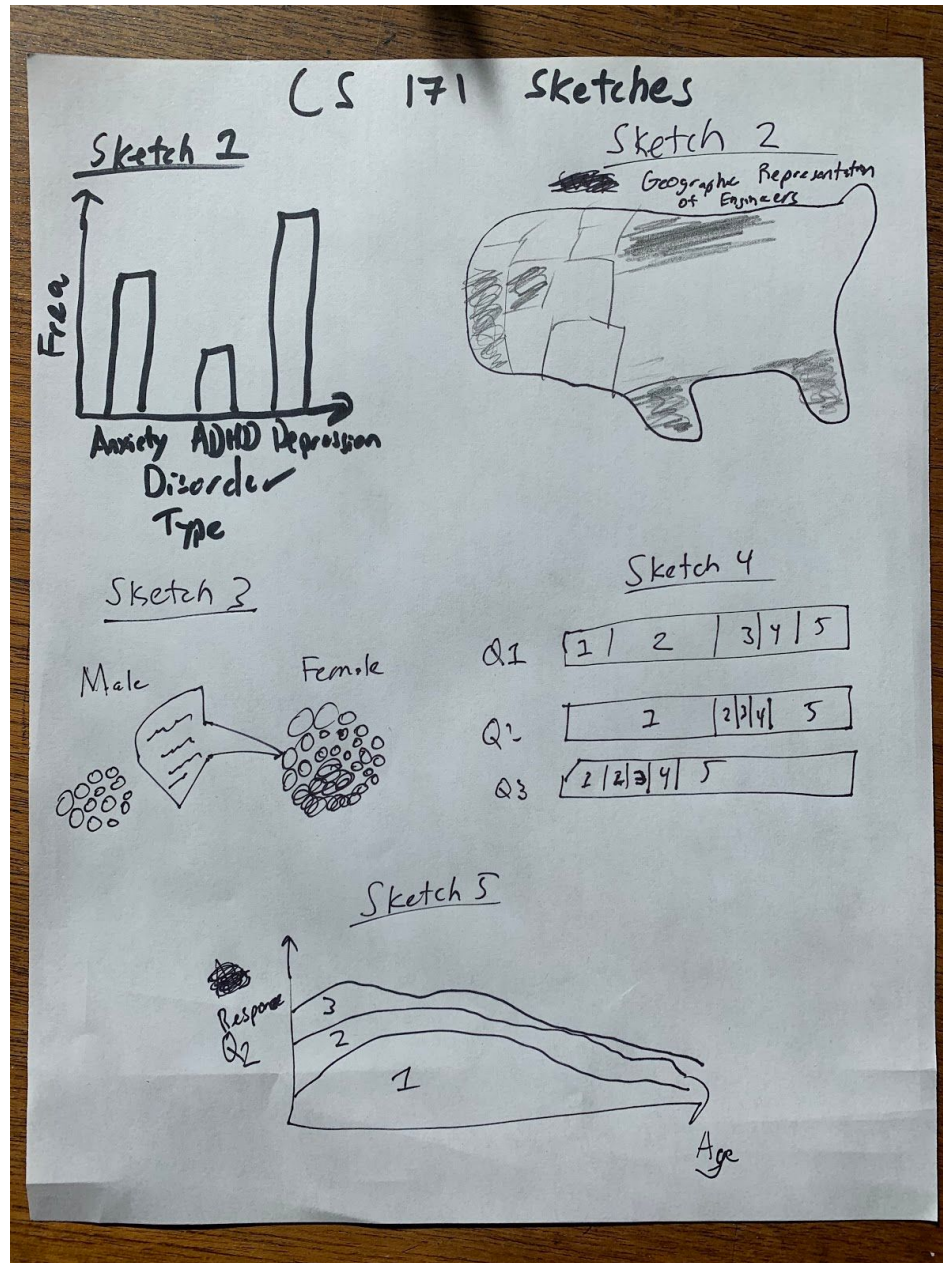 CS 171 Sketches
Sketch 1
Freq
Anxiety ADHD Depression
Disorder
Type
Sketch 2
Geographic Representation
of Engineers
Sketch 3
Male
Female
Sketch 4
Q1 1 2 3 4 5
Q2 1 2 3 4 5
Q3 1 2 3 4 5
Sketch 5
Response
Q2
3
2
1
Age